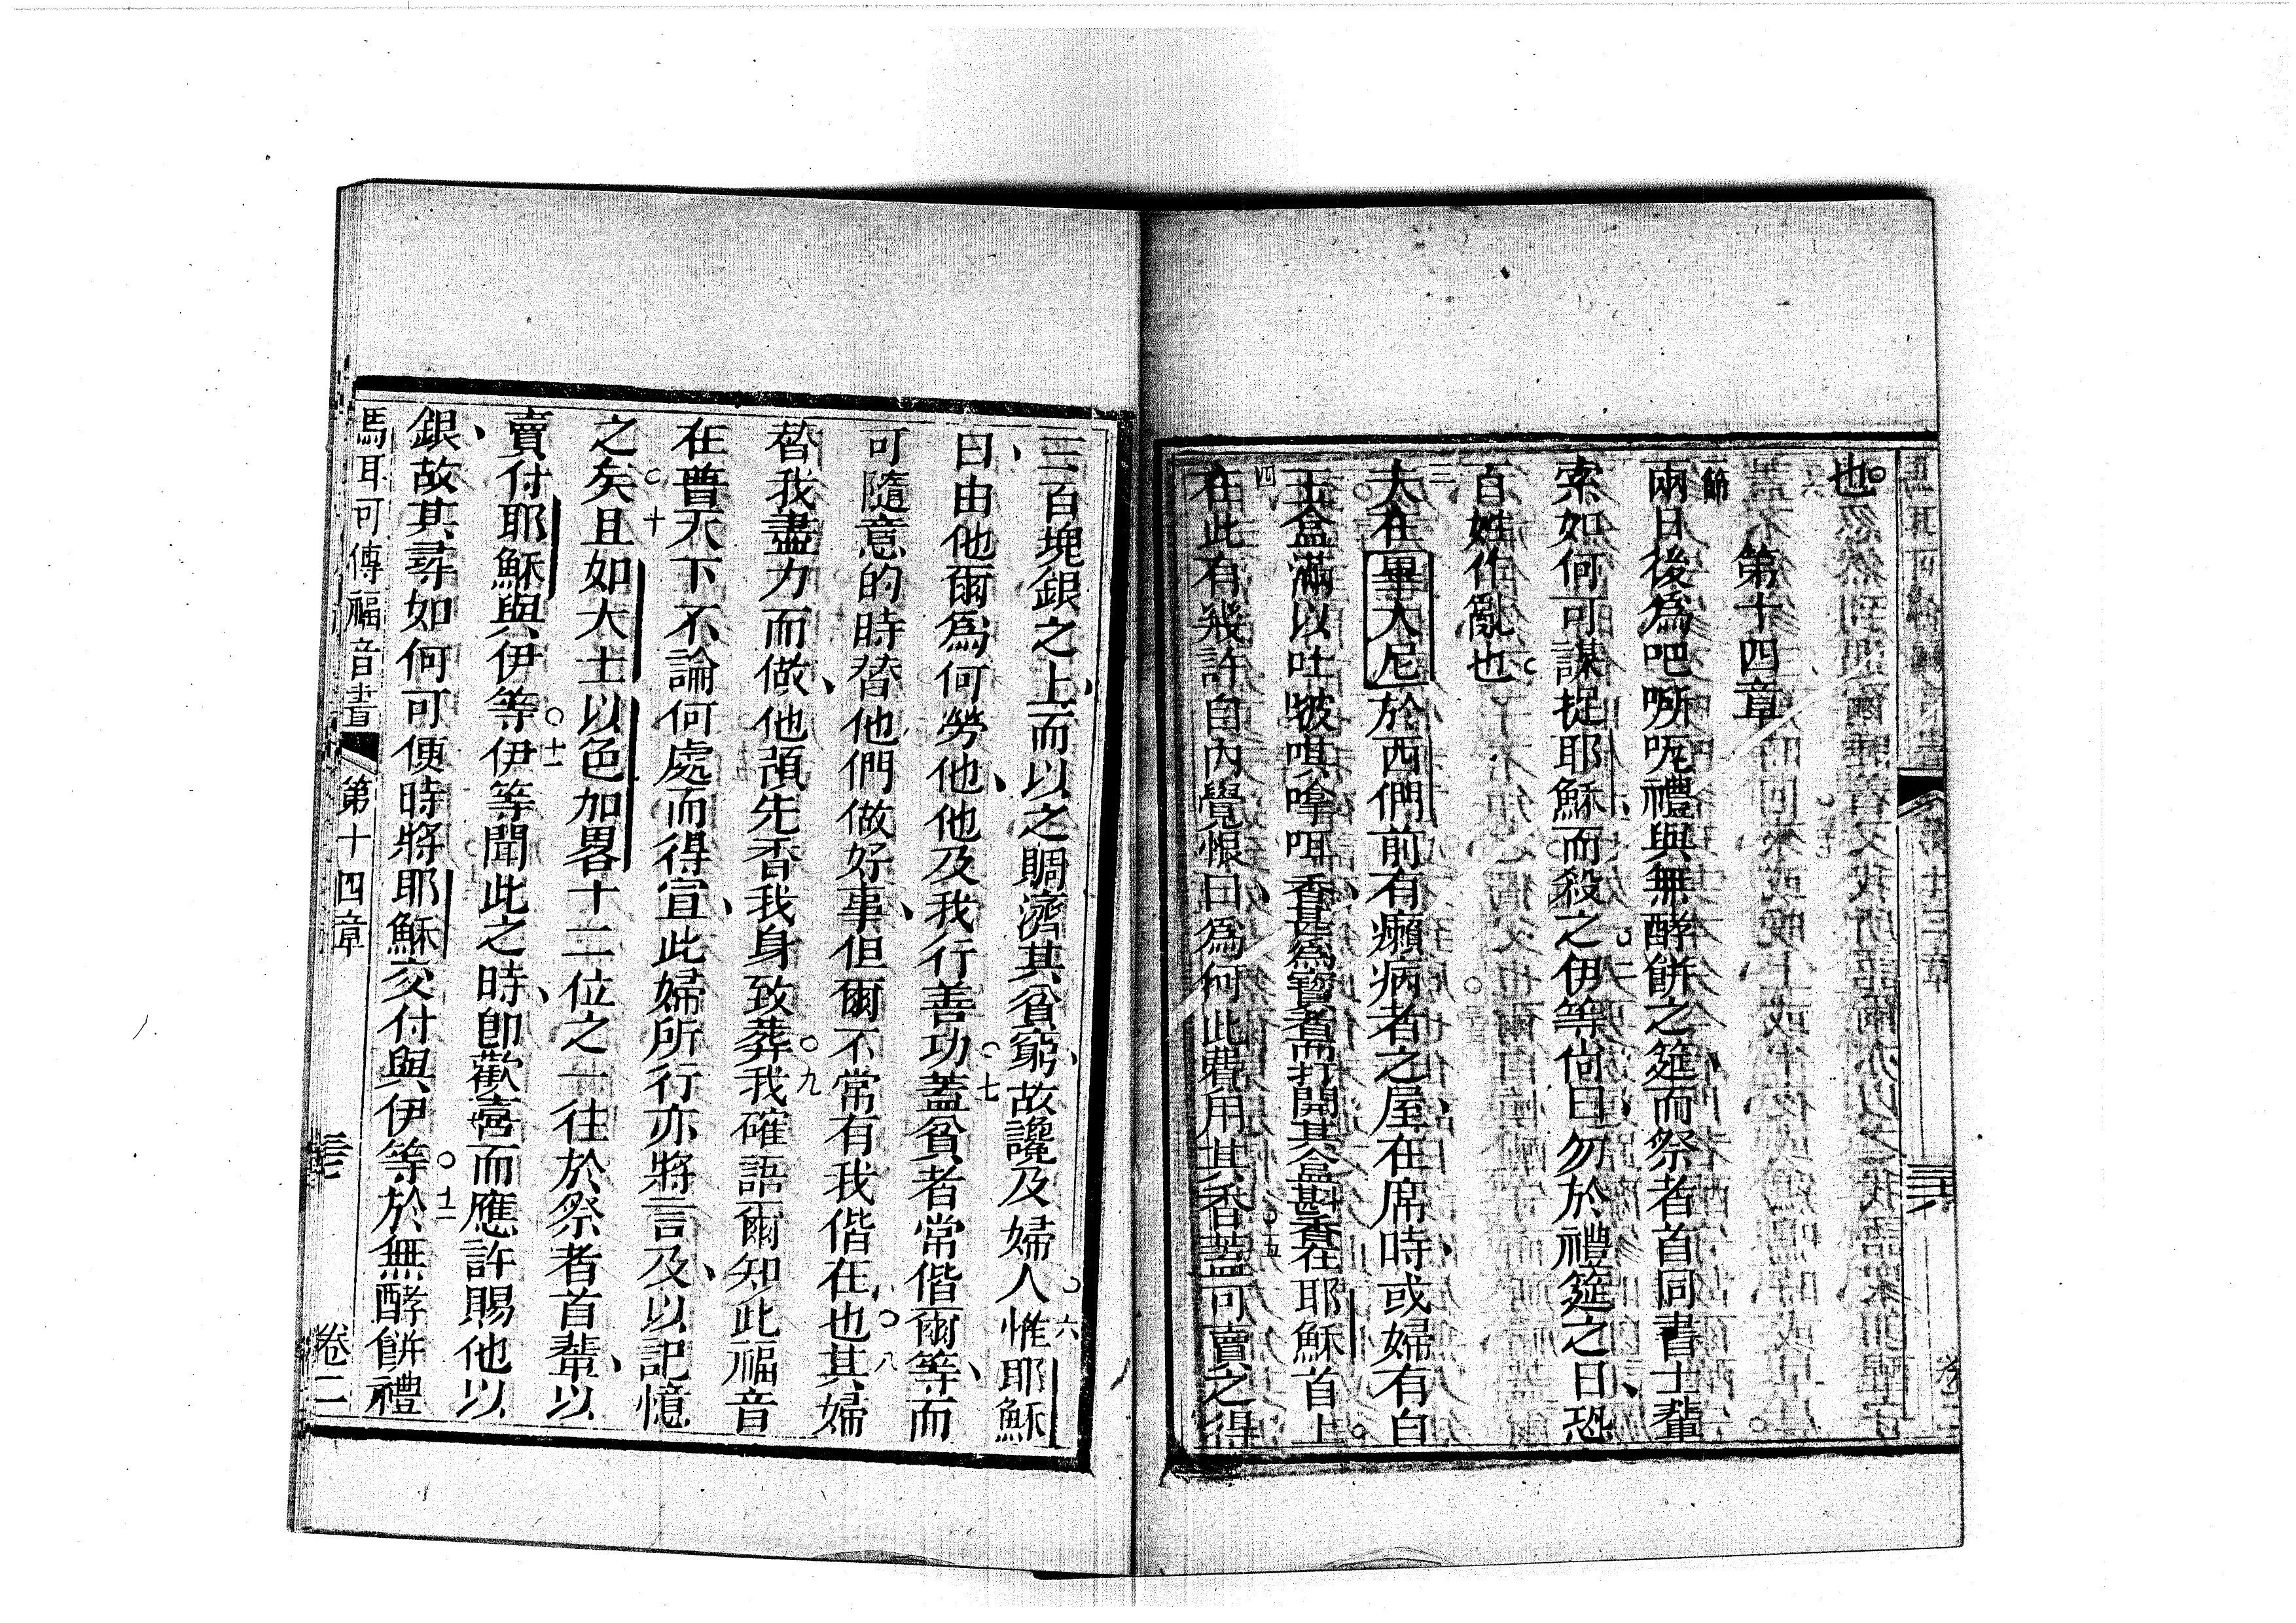 也
第十四章
一節
兩日後爲吧𠵽呢禮與無酵餅之筵而祭者首同書士輩
索如何可謀捉耶穌而殺之伊等尚曰勿於禮筵之日恐
百姓作亂也
三
夫在畢大尼於西們前有癩病者之屋在席時或婦有白
玉盒滿以吐𡲬唭嗱咡香甚爲寶者而打開其盒斟香在耶穌首上
四
在此有幾許自內覺恨曰爲何此費用其香 五 蓋可賣之得
三百塊銀之上而以之賙濟其貧窮故讒及婦人 六 惟耶穌
曰由他爾爲何勞他他及我行善功 七 蓋貧者常偕爾等而
可隨意的時替他們做好事但爾不常有我偕在也 八 其婦
替我盡力而做他預先香我身致葬 九 我確語爾知此福音
在普天下不論何處而得宣此婦所行亦將言及以記憶
之矣 十 且如大士以色加畧十二位之一往於祭者首輩以
賣付耶穌與伊等 十一 伊等聞此之時卽歡喜而應許賜他以
銀故其尋如何可便時將耶穌交付與伊等 十二 於無酵餅禮
馬耳可傳福音書 第十四章 卷二